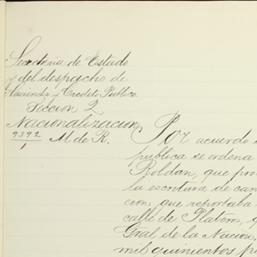 Secretaria de Estado
y del despacho de
Hacienda y Credito Publico.
Seccion 2
Nacionalizacion
9392 M. de R.
1
Por acuerdo
publica se ordena
Roldan, que pro
la escritura de can
cion, que reportaba
calle de Plateros,
Gral de la Nacion,
mil quinientos p